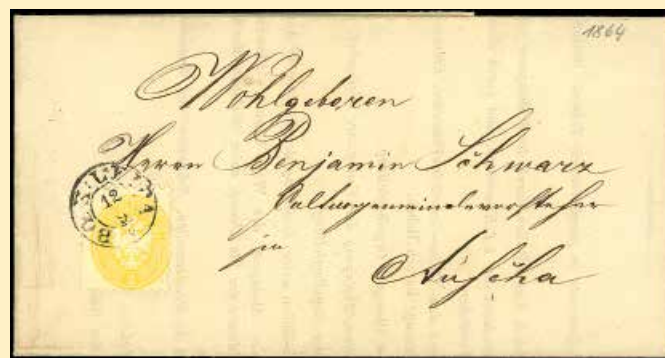 1864
Wohlgeboren
Herrn Benjamin Schwarz
Cultusgemeindevorsteher
in
Auscha
BÖH: LEIPA
12